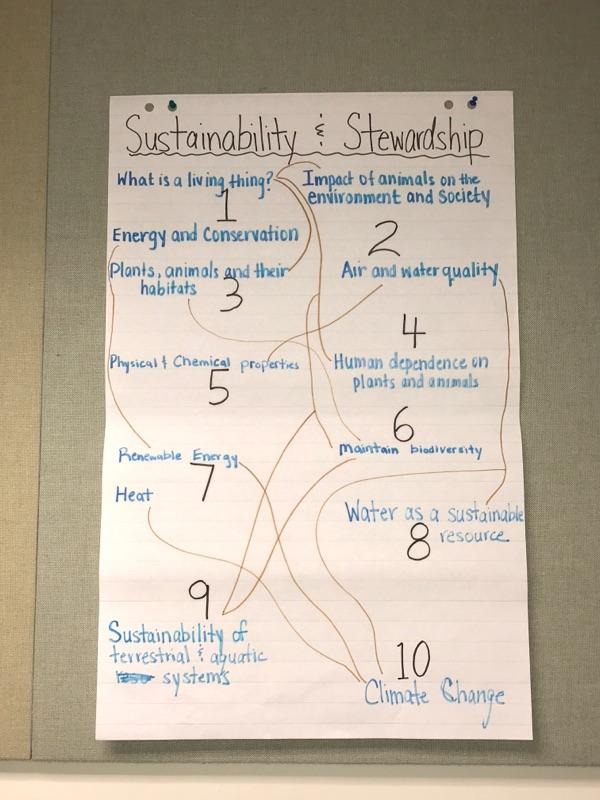 Sustainability & Stewardship
What is a living thing?
Impact of animals on the
environment and society
1
Energy and Conservation
2
Plants, animals and their
habitats
3
Air and water quality
4
Physical & Chemical properties
5
Human dependence on
plants and animals
6
Renewable Energy
maintain biodiversity
7
Heat
Water as a sustainable
resource
8
9
Sustainability of
terrestrial & aquatic
systems
10
Climate Change